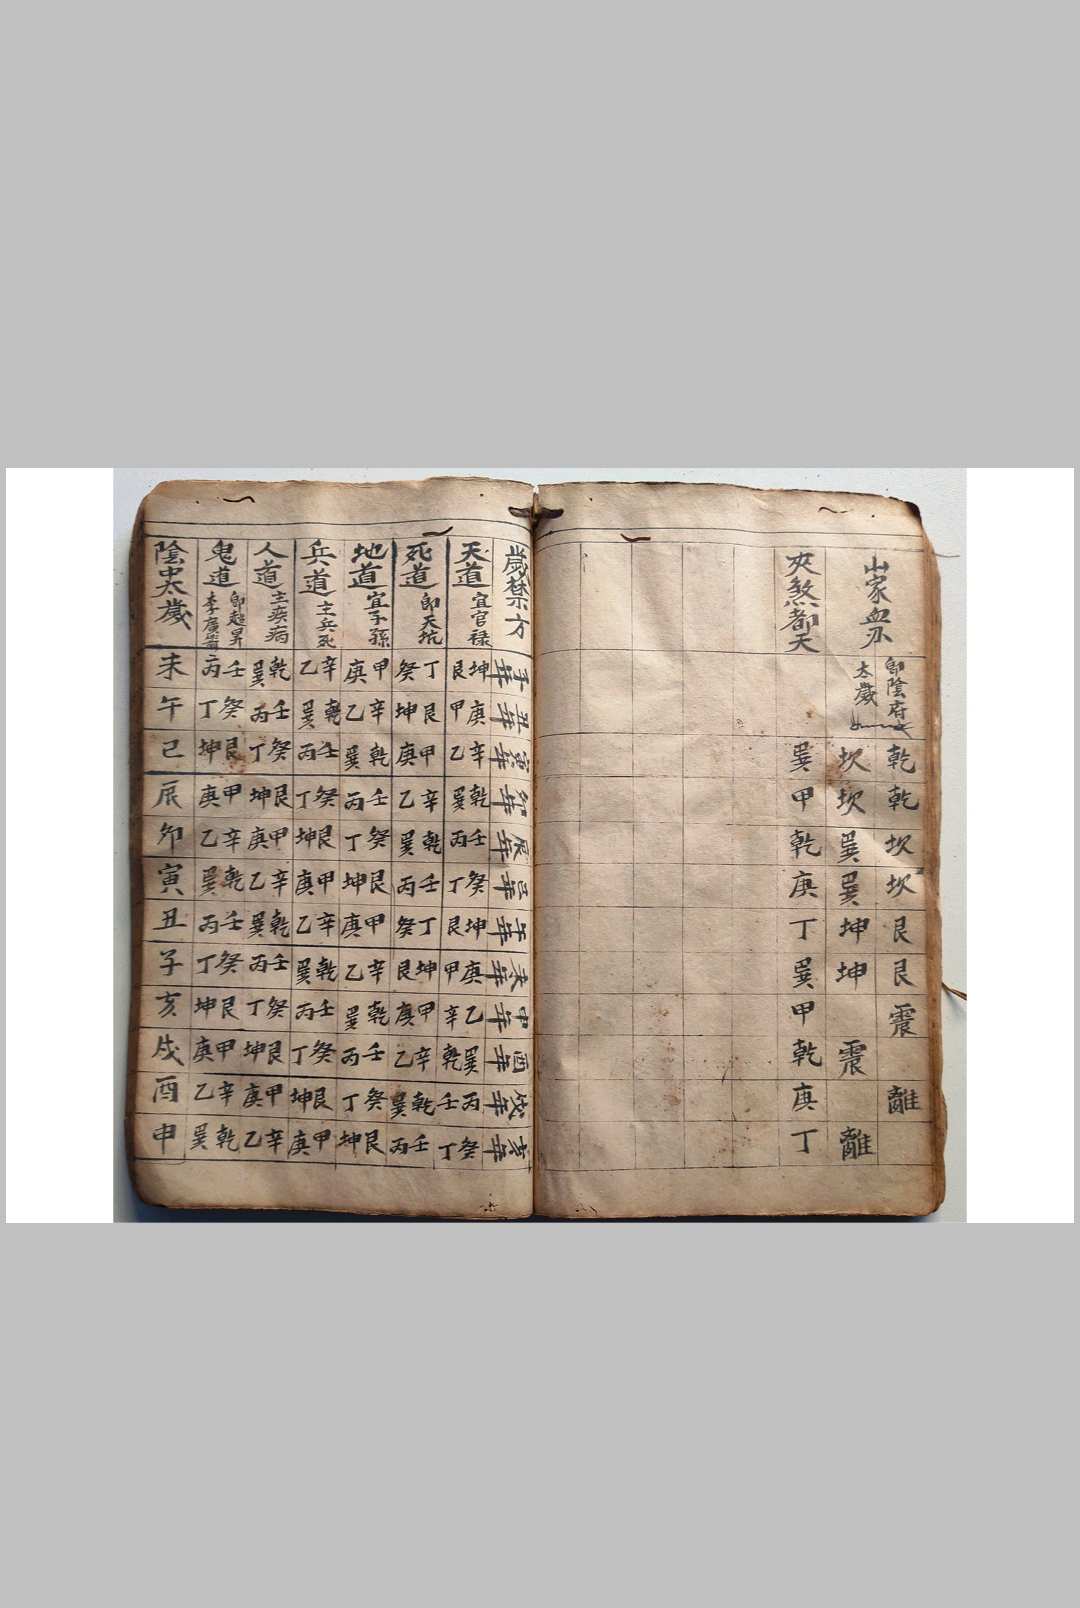 山家血刃
即陰府
太歲
乾 乾 坎 坎 艮 艮 震 離
坎 坎 巽 巽 坤 坤 震 離
夾煞都天 巽 甲 乾 庚 丁 巽 甲 乾 庚 丁
歲禁方 子年 丑年 寅年 卯年 辰年 巳年 午年 未年 申年 酉年 戌年 亥年
天道 宜官禄 坤艮 庚甲 辛乙 乾巽 壬丙 癸丁 坤艮 庚甲 乙辛 巽乾 丙壬 癸丁
死道 即天坑 丁癸 艮坤 甲庚 辛乙 乾巽 壬丙 丁癸 坤艮 甲庚 辛乙 乾巽 壬丙
地道 宜子孫 甲庚 辛乙 乾巽 壬丙 癸丁 艮坤 甲庚 辛乙 乾巽 壬丙 癸丁 艮坤
兵道 主兵死 辛乙 乾巽 壬丙 癸丁 艮坤 甲庚 辛乙 乾巽 壬丙 癸丁 艮坤 甲庚
人道 主疾病 乾巽 壬丙 癸丁 艮坤 甲庚 辛乙 乾巽 壬丙 癸丁 艮坤 甲庚 辛乙
鬼道 即趙昇李廣箭 壬丙 癸丁 艮坤 甲庚 辛乙 乾巽 壬丙 癸丁 艮坤 甲庚 辛乙 乾巽
陰中太歲 未 午 巳 辰 卯 寅 丑 子 亥 戌 酉 申